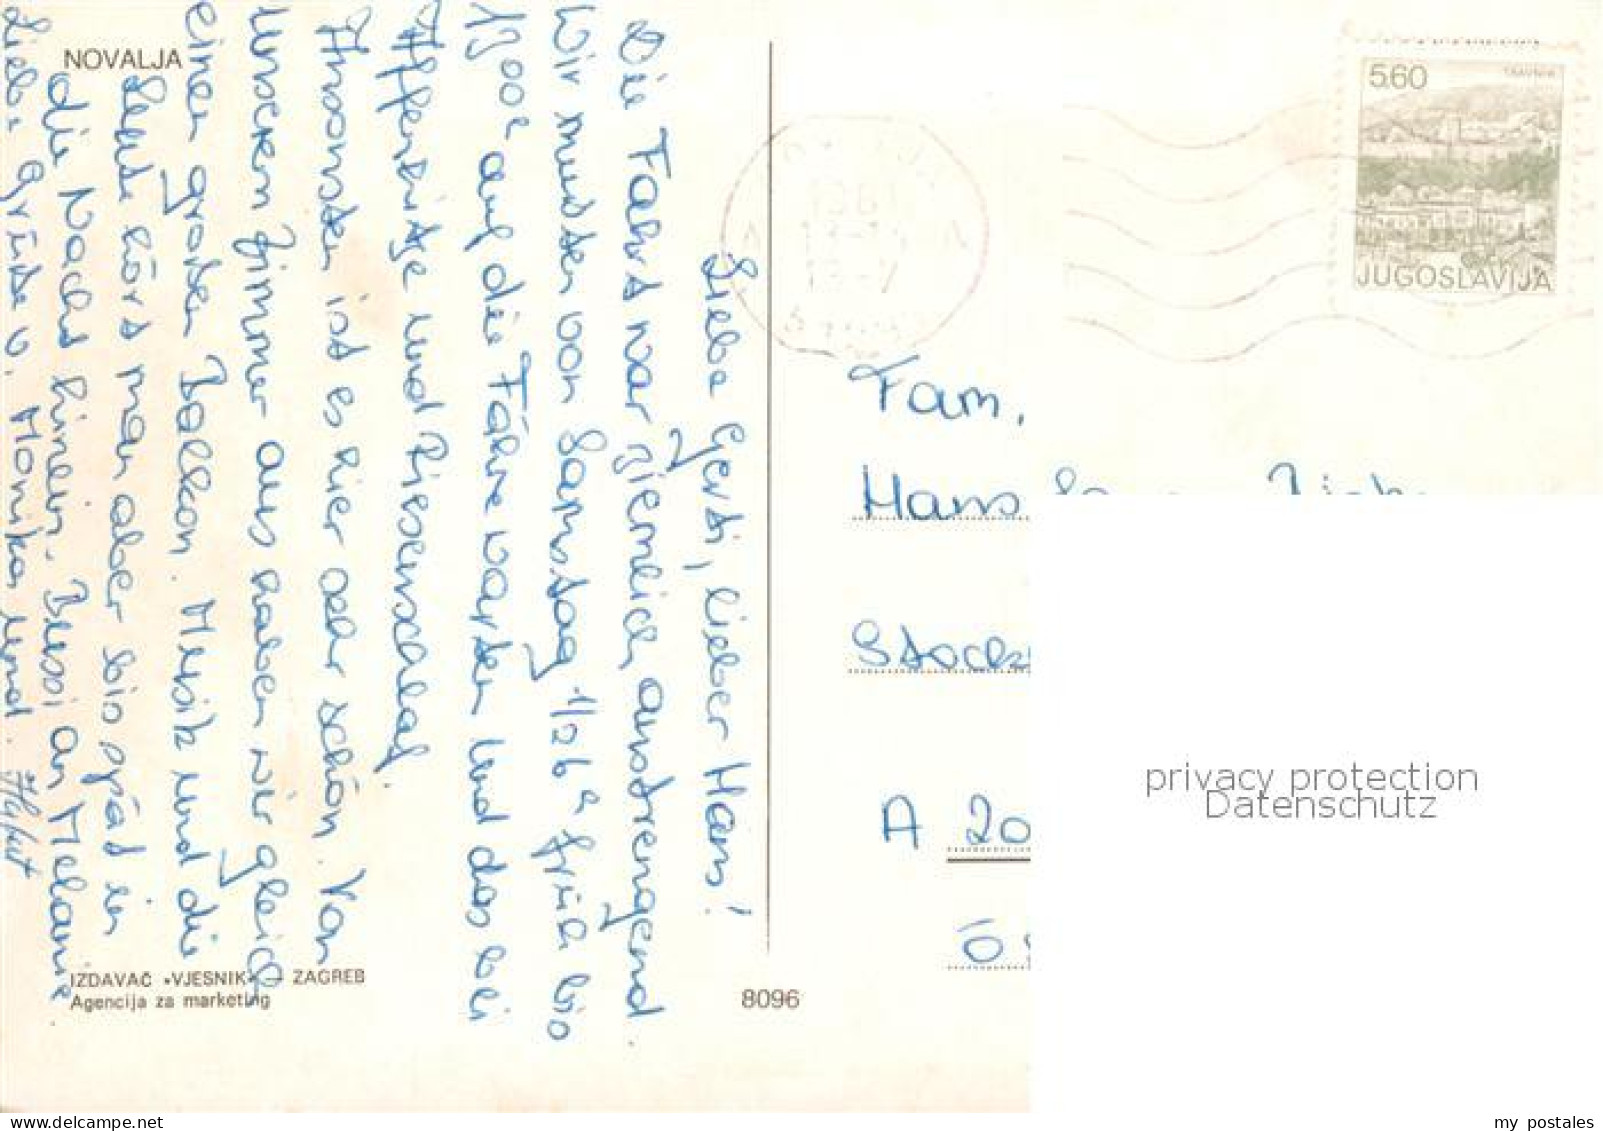 NOVALJA
Liebe Gerti, lieber Hans!
Die Fahrt war ziemlich anstrengend.
Wir mußten von Samstag 1/2 6ʰ früh bis
1300ʰ auf die Fähre warten und das bei
Affenhitze und Riesenschlaf.
Ansonsten ist es hier sehr schön. Von
unserem Zimmer aus haben wir gleich
einen großen Balkon. Musik und die
Leute hört man aber bis spät in
die Nacht hinein. Bussi an Melanie
Liebe Grüße v. Monika und
IZDAVAČ »VJESNIK« — ZAGREB
Agencija za marketing
8096
5.60
TRAVNIK
JUGOSLAVIJA
Fam.
Hans
A 20
privacy protection
Datenschutz
my postales